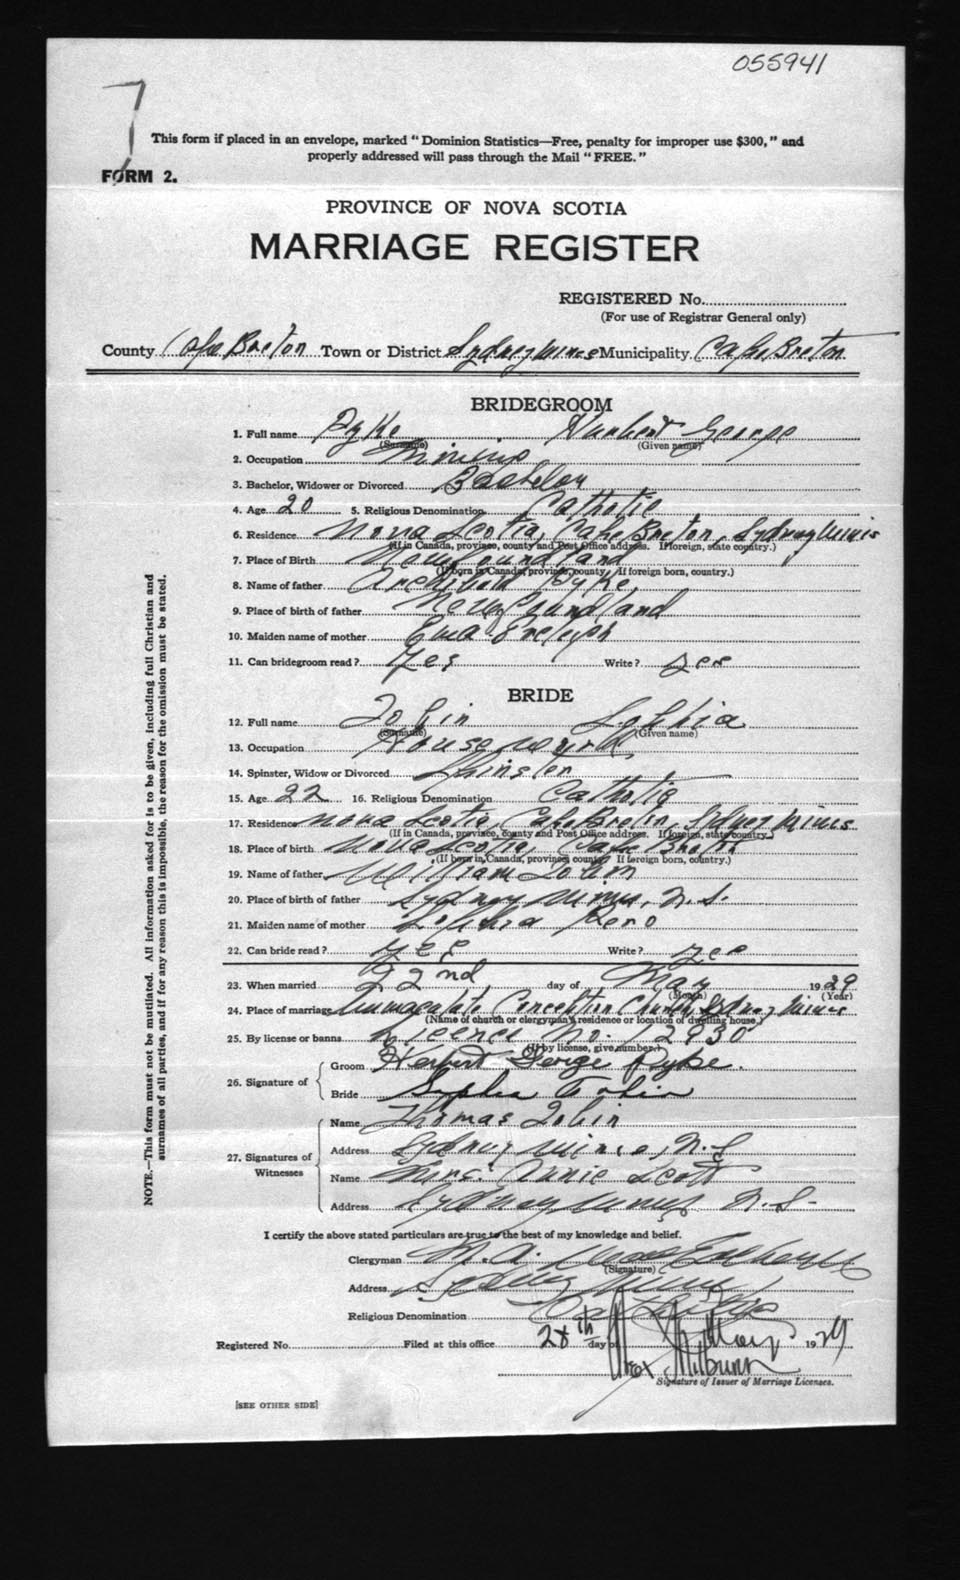 055941
7
This form if placed in an envelope, marked "Dominion Statistics—Free, penalty for improper use $300," and
properly addressed will pass through the Mail "FREE."
FORM 2.
PROVINCE OF NOVA SCOTIA
MARRIAGE REGISTER
REGISTERED No.
(For use of Registrar General only)
County Cape Breton Town or District Sydney Mines Municipality Cape Breton
BRIDEGROOM
1. Full name Pyke Herbert George
(Surname) (Given name)
2. Occupation Mining
3. Bachelor, Widower or Divorced Bachelor
4. Age 20 5. Religious Denomination Catholic
6. Residence Nova Scotia, Cape Breton, Sydney Mines
(If in Canada, province, county and Post Office address. If foreign, state country.)
7. Place of Birth Newfoundland
(If born in Canada, province, county, If foreign born, country.)
8. Name of father Archibald Pyke
9. Place of birth of father Newfoundland
10. Maiden name of mother
11. Can bridegroom read? Yes Write? yes
BRIDE
12. Full name Tobin Sophia
(Surname) (Given name)
13. Occupation Housework
14. Spinster, Widow or Divorced Spinster
15. Age 22 16. Religious Denomination Catholic
17. Residence Nova Scotia, Cape Breton, Sidney Mines
(If in Canada, province, county and Post Office address. If foreign, state country.)
18. Place of birth Nova Scotia, Cape Breton
(If born in Canada, province county If foreign born, country.)
19. Name of father William Tobin
20. Place of birth of father Sydney Mines, N.S.
21. Maiden name of mother Sophia
22. Can bride read? yes Write? yes
23. When married 22nd day of May 1929
(Month) (Year)
24. Place of marriage Immaculate Conception Church, Sydney Mines
(Name of church or clergyman's residence or location of dwelling house.)
25. By license or banns Licence No. 72930
(If by license, give number.)
26. Signature of Groom Herbert George Pyke.
Bride Sophia Tobin
27. Signatures of Witnesses Name Thomas Tobin
Address Sydney Mines, N.S
Name Mrs. Annie Scott
Address Sydney Mines N.S.
I certify the above stated particulars are true to the best of my knowledge and belief.
Clergyman M. A.
(Signature)
Address Sydney Mines
Religious Denomination Catholic
Registered No. Filed at this office 28th day of May 1929
Signature of Issuer of Marriage Licenses.
[SEE OTHER SIDE]
NOTE.—This form must not be mutilated. All information asked for is to be given, including full Christian and
surnames of all parties, and if for any reason this is impossible, the reason for the omission must be stated.